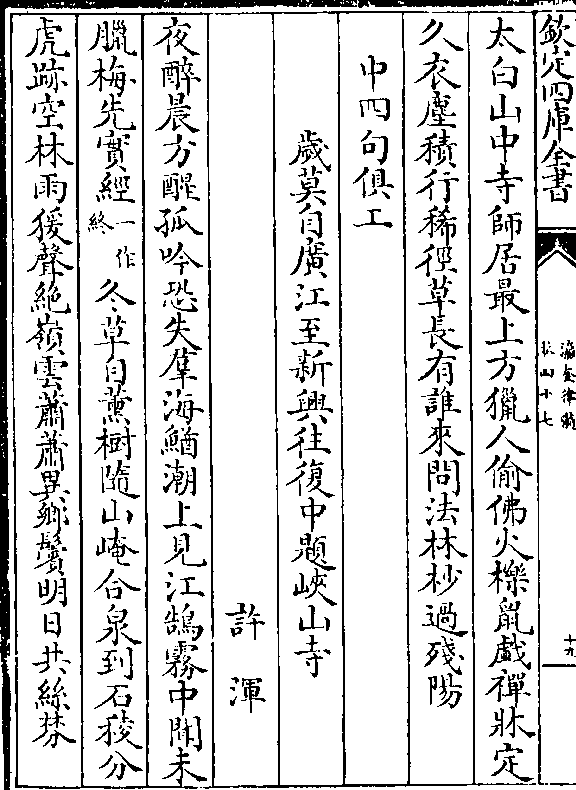 欽定四庫全書
瀛奎律髓
卷四十七
十九
太白山中寺師居最上方獵人偷佛火櫟鼠戲禪牀定
久衣塵積行稀徑草長有誰來問法林杪過殘陽
中四句俱工
歲莫自廣江至新興往復中題峽山寺
許渾
夜醉晨方醒孤吟恐失羣海鰌潮上見江鵠霧中聞未
臘梅先實經一作終冬草自薰樹隨山崦合泉到石稜分
虎跡空林雨猨聲絶嶺雲蕭蕭異鄉鬢明日共絲棼